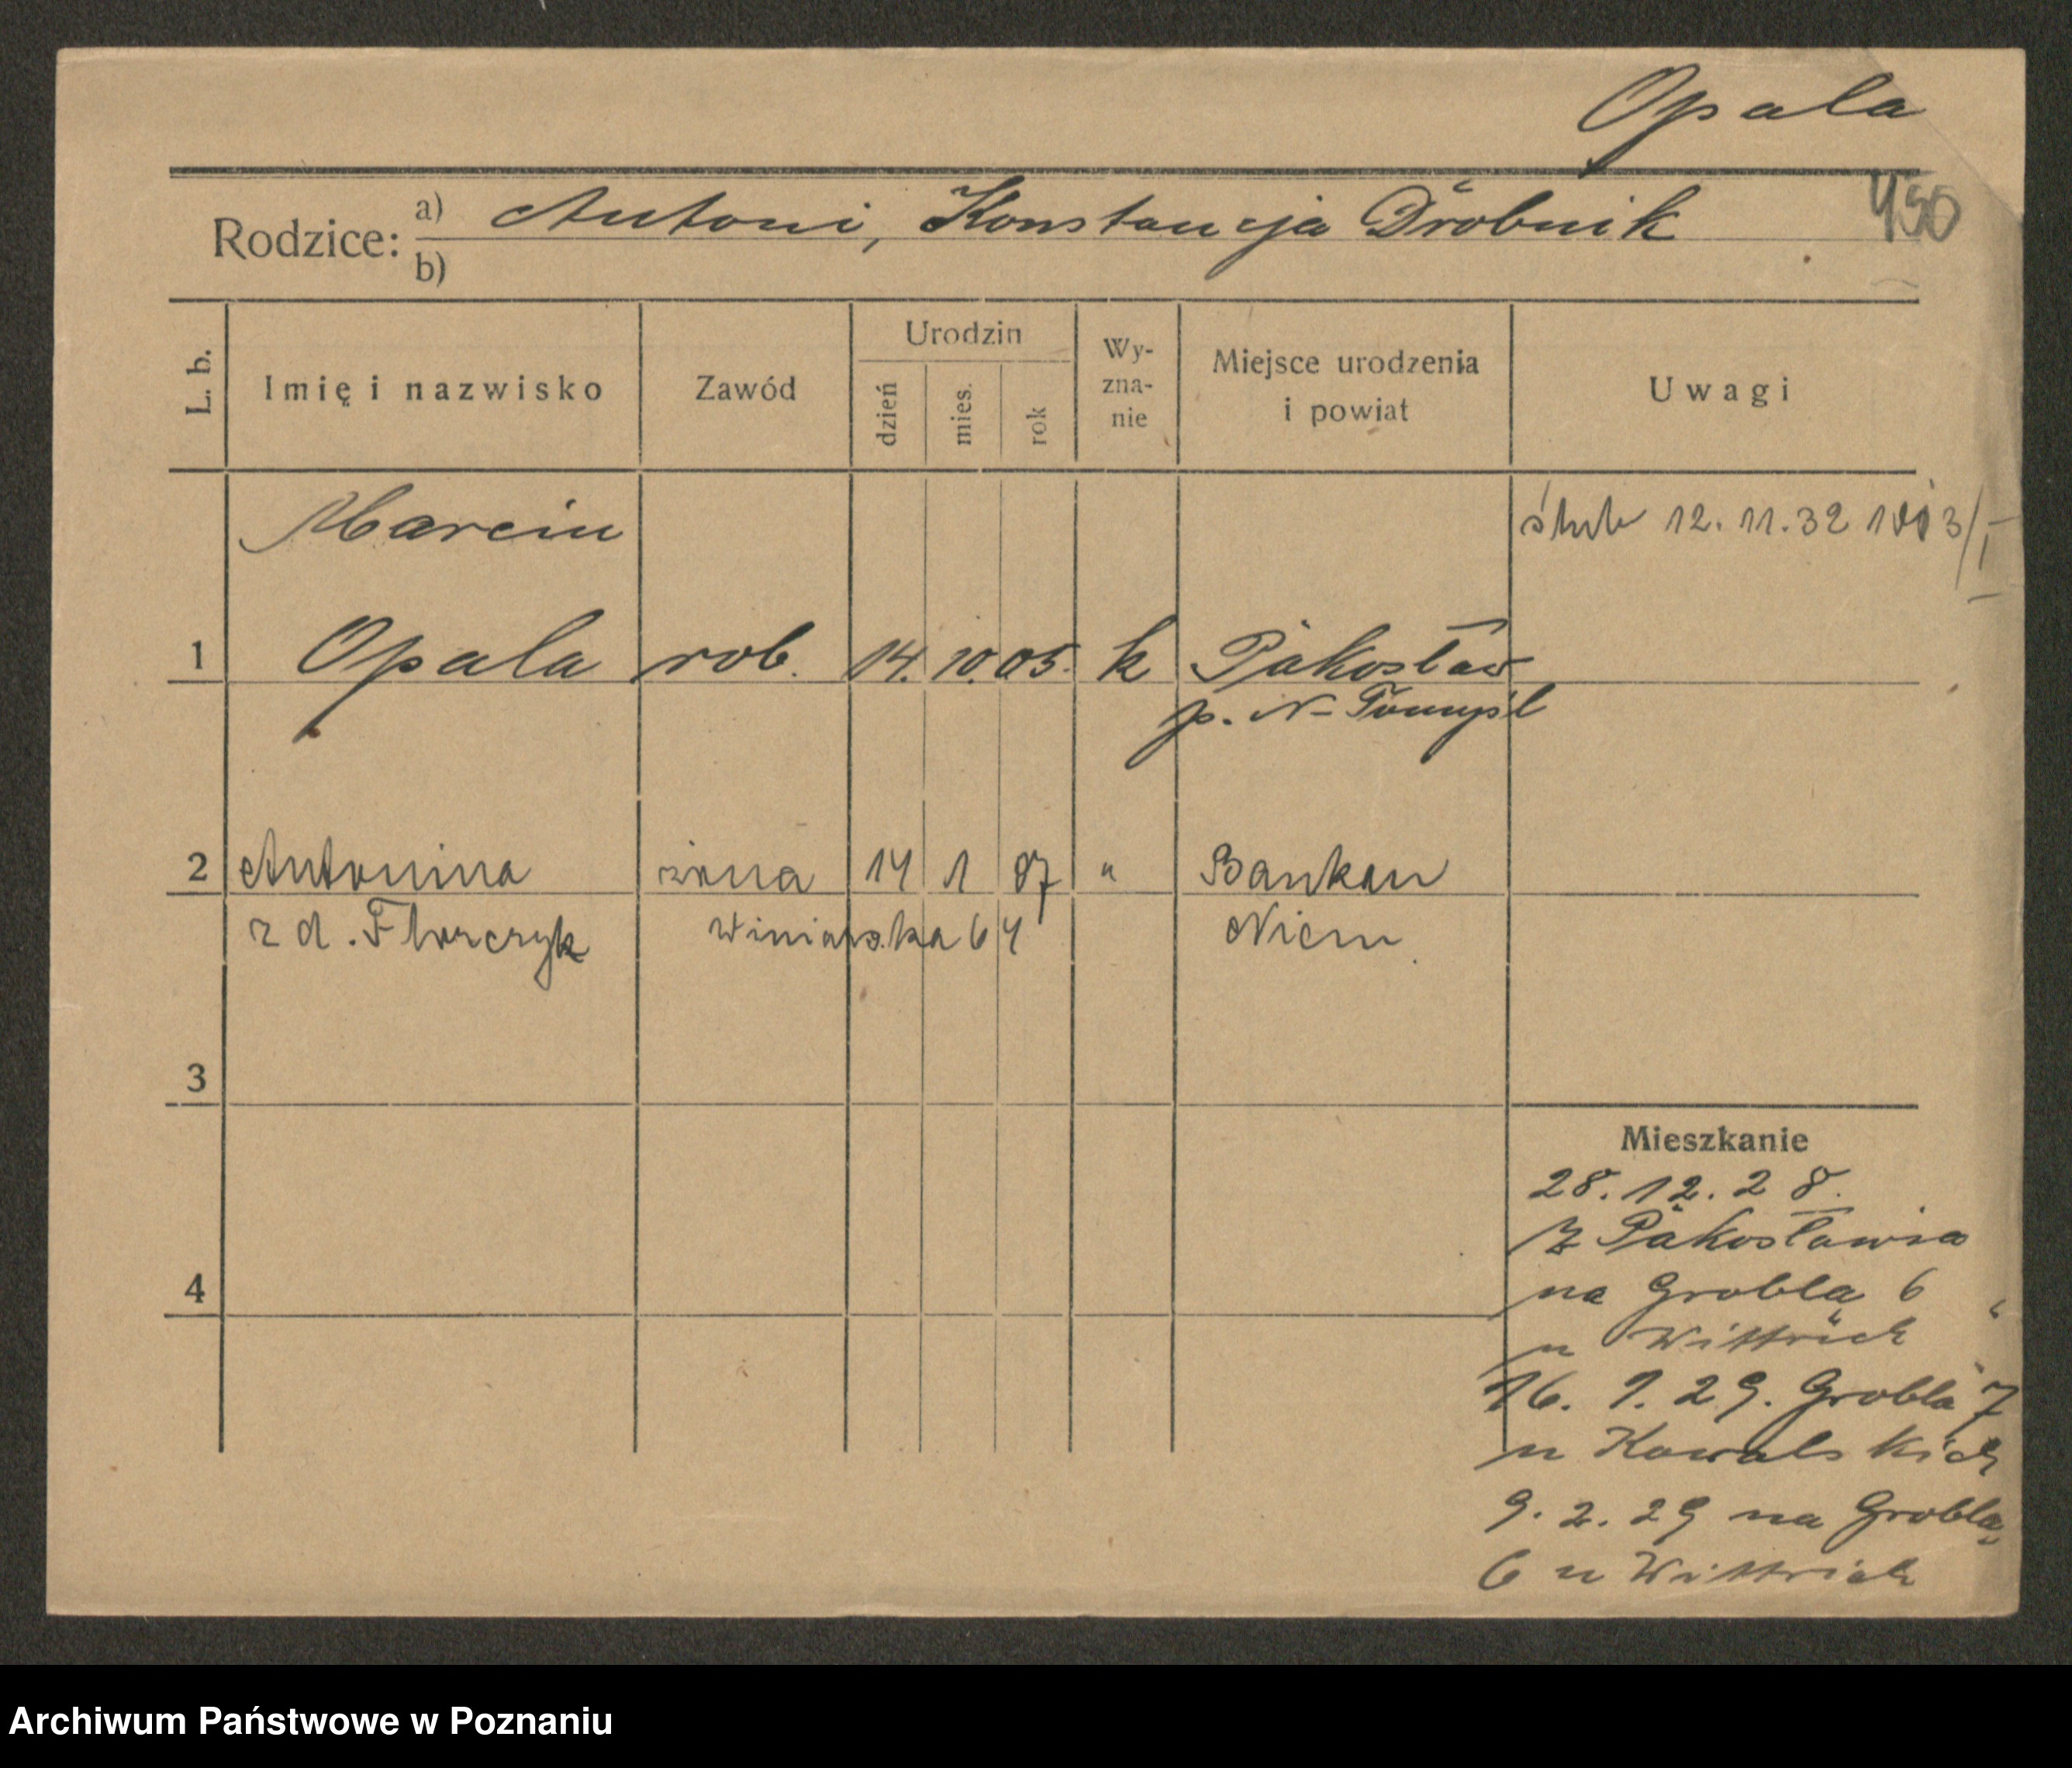 Opala
450
Rodzice: a) Antoni, Konstancja Drobnik
b)
L. b. Imię i nazwisko Zawód Urodzin dzień mies. rok Wy-zna-nie Miejsce urodzenia i powiat Uwagi
Marcin ślub 12.11.32
1 Opala rob. 14. 10. 05. k Pakosław
p. N-Tomyśl
2 Antonina żona 14 1 07 " Bankau
z d. Florczyk Winiarska 64 Niem.
3
Mieszkanie
28.12.28.
z Pakosławia
4 na Grobla 6
u Wittrich
16. 1. 29. Grobla 7
u Kowalskich
9. 2. 29 na Groblą
6 u Wittrich
Archiwum Państwowe w Poznaniu